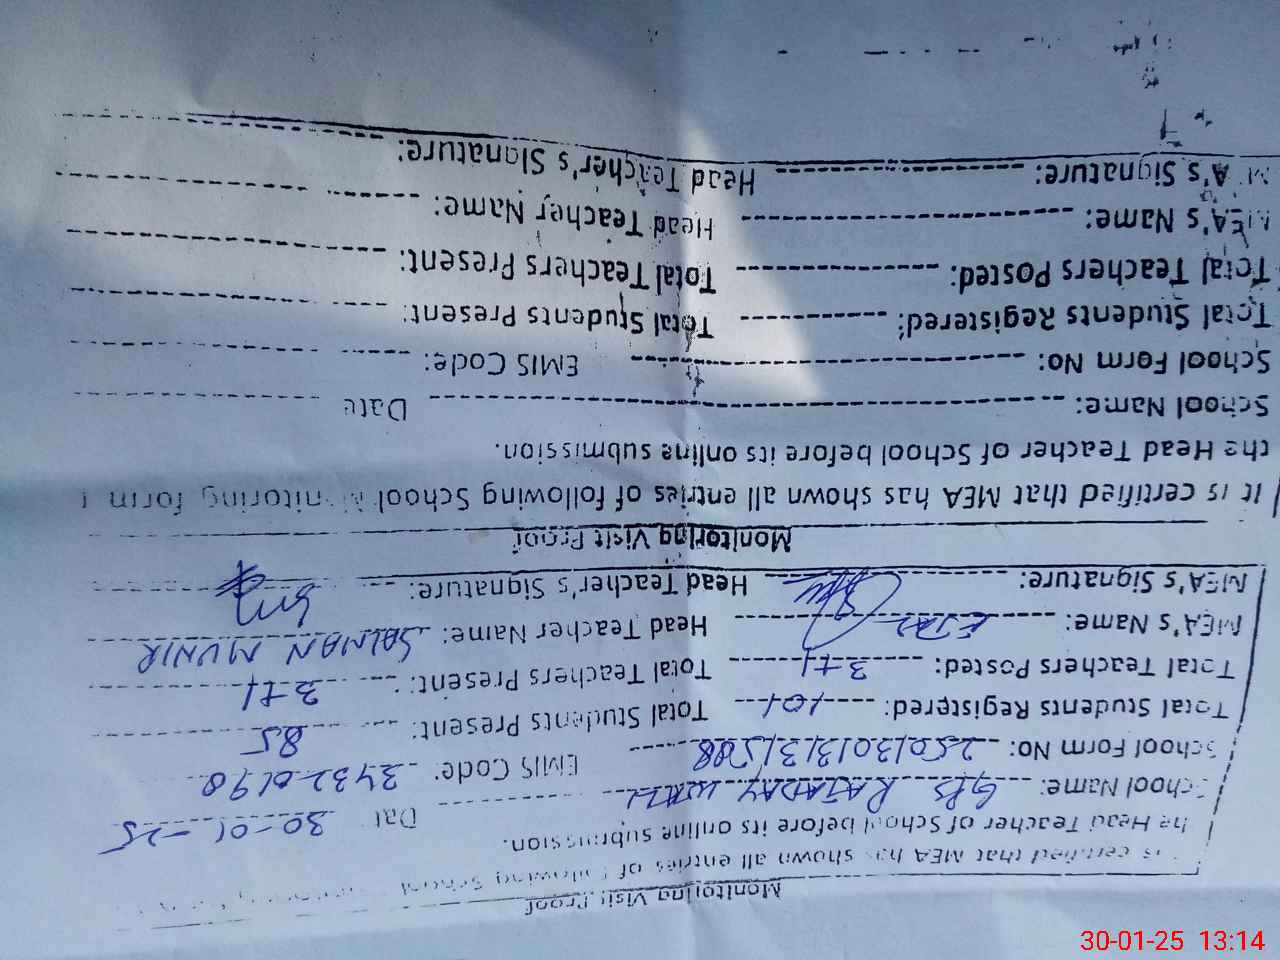 Monitoring Visit Proof
is certified that MEA has shown all entries of following School
the Head Teacher of School before its online submission.
School Name: GPS RAJADAY Date 30-01-25
School Form No: EMIS Code: 34320190
Total Students Registered: 101 Total Students Present: 85
Total Teachers Posted: 3+1 Total Teachers Present: 3+1
MEA's Name: Head Teacher Name: SALMAN MUNIR
MEA's Signature: Head Teacher's Signature:
Monitoring Visit Proof
It is certified that MEA has shown all entries of following School Monitoring form
the Head Teacher of School before its online submission.
School Name: Date
School Form No: EMIS Code:
Total Students Registered: Total Students Present:
Total Teachers Posted: Total Teachers Present:
MEA's Name: Head Teacher Name:
MEA's Signature: Head Teacher's Signature:
30-01-25 13:14